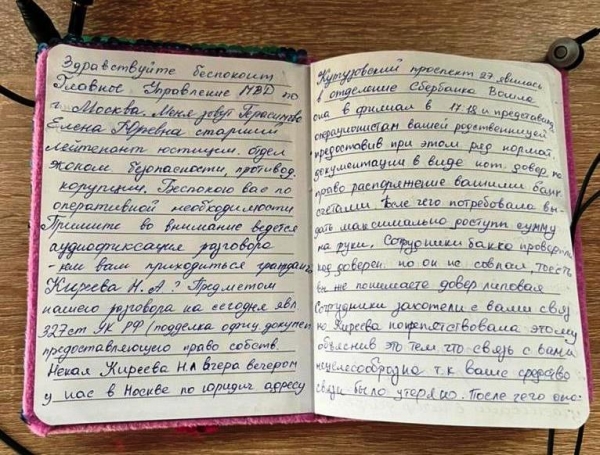 Здравствуйте беспокоит
Главное Управление МВД по
г. Москва. Меня зовут
Елена Юревна старший
лейтенант юстиции. отдел
эконом. безопасности, противод.
корупции. Беспокою вас по
оперативной необходимости
Примите во внимание ведется
аудиофиксация разговора
- кем вам приходиться граждан
Киреева Н. А? Предметом
нашего разговора на сегодня явл
327 ст УК РФ (подделка офиц. докумен
предоставляющего право собств.
Некая Киреева Н.А вчера вечером
у нас в Москве по юридич. адресу
Кутузовский проспект 27. явилась
в отделение Сбербанка Вошла
она в филиал в 17.18 и представ
операционистам вашей родственницей
предоставив при этом ряд нормал.
документации в виде нот. довер. на
право распоряжение вашими банк.
счетами. После чего потребовала вы-
дать максимально доступн сумму
на руки. Сотрудники банка провер
код доверен. но он не совпал, то есть
вы не понимаете довер липовая
Сотрудники захотели с вами связ
но Киреева попрепятствовала этому
объяснив это тем, что связь с вами
нецелесообродна т.к ваше средство
связи было утеряно. После чего она-